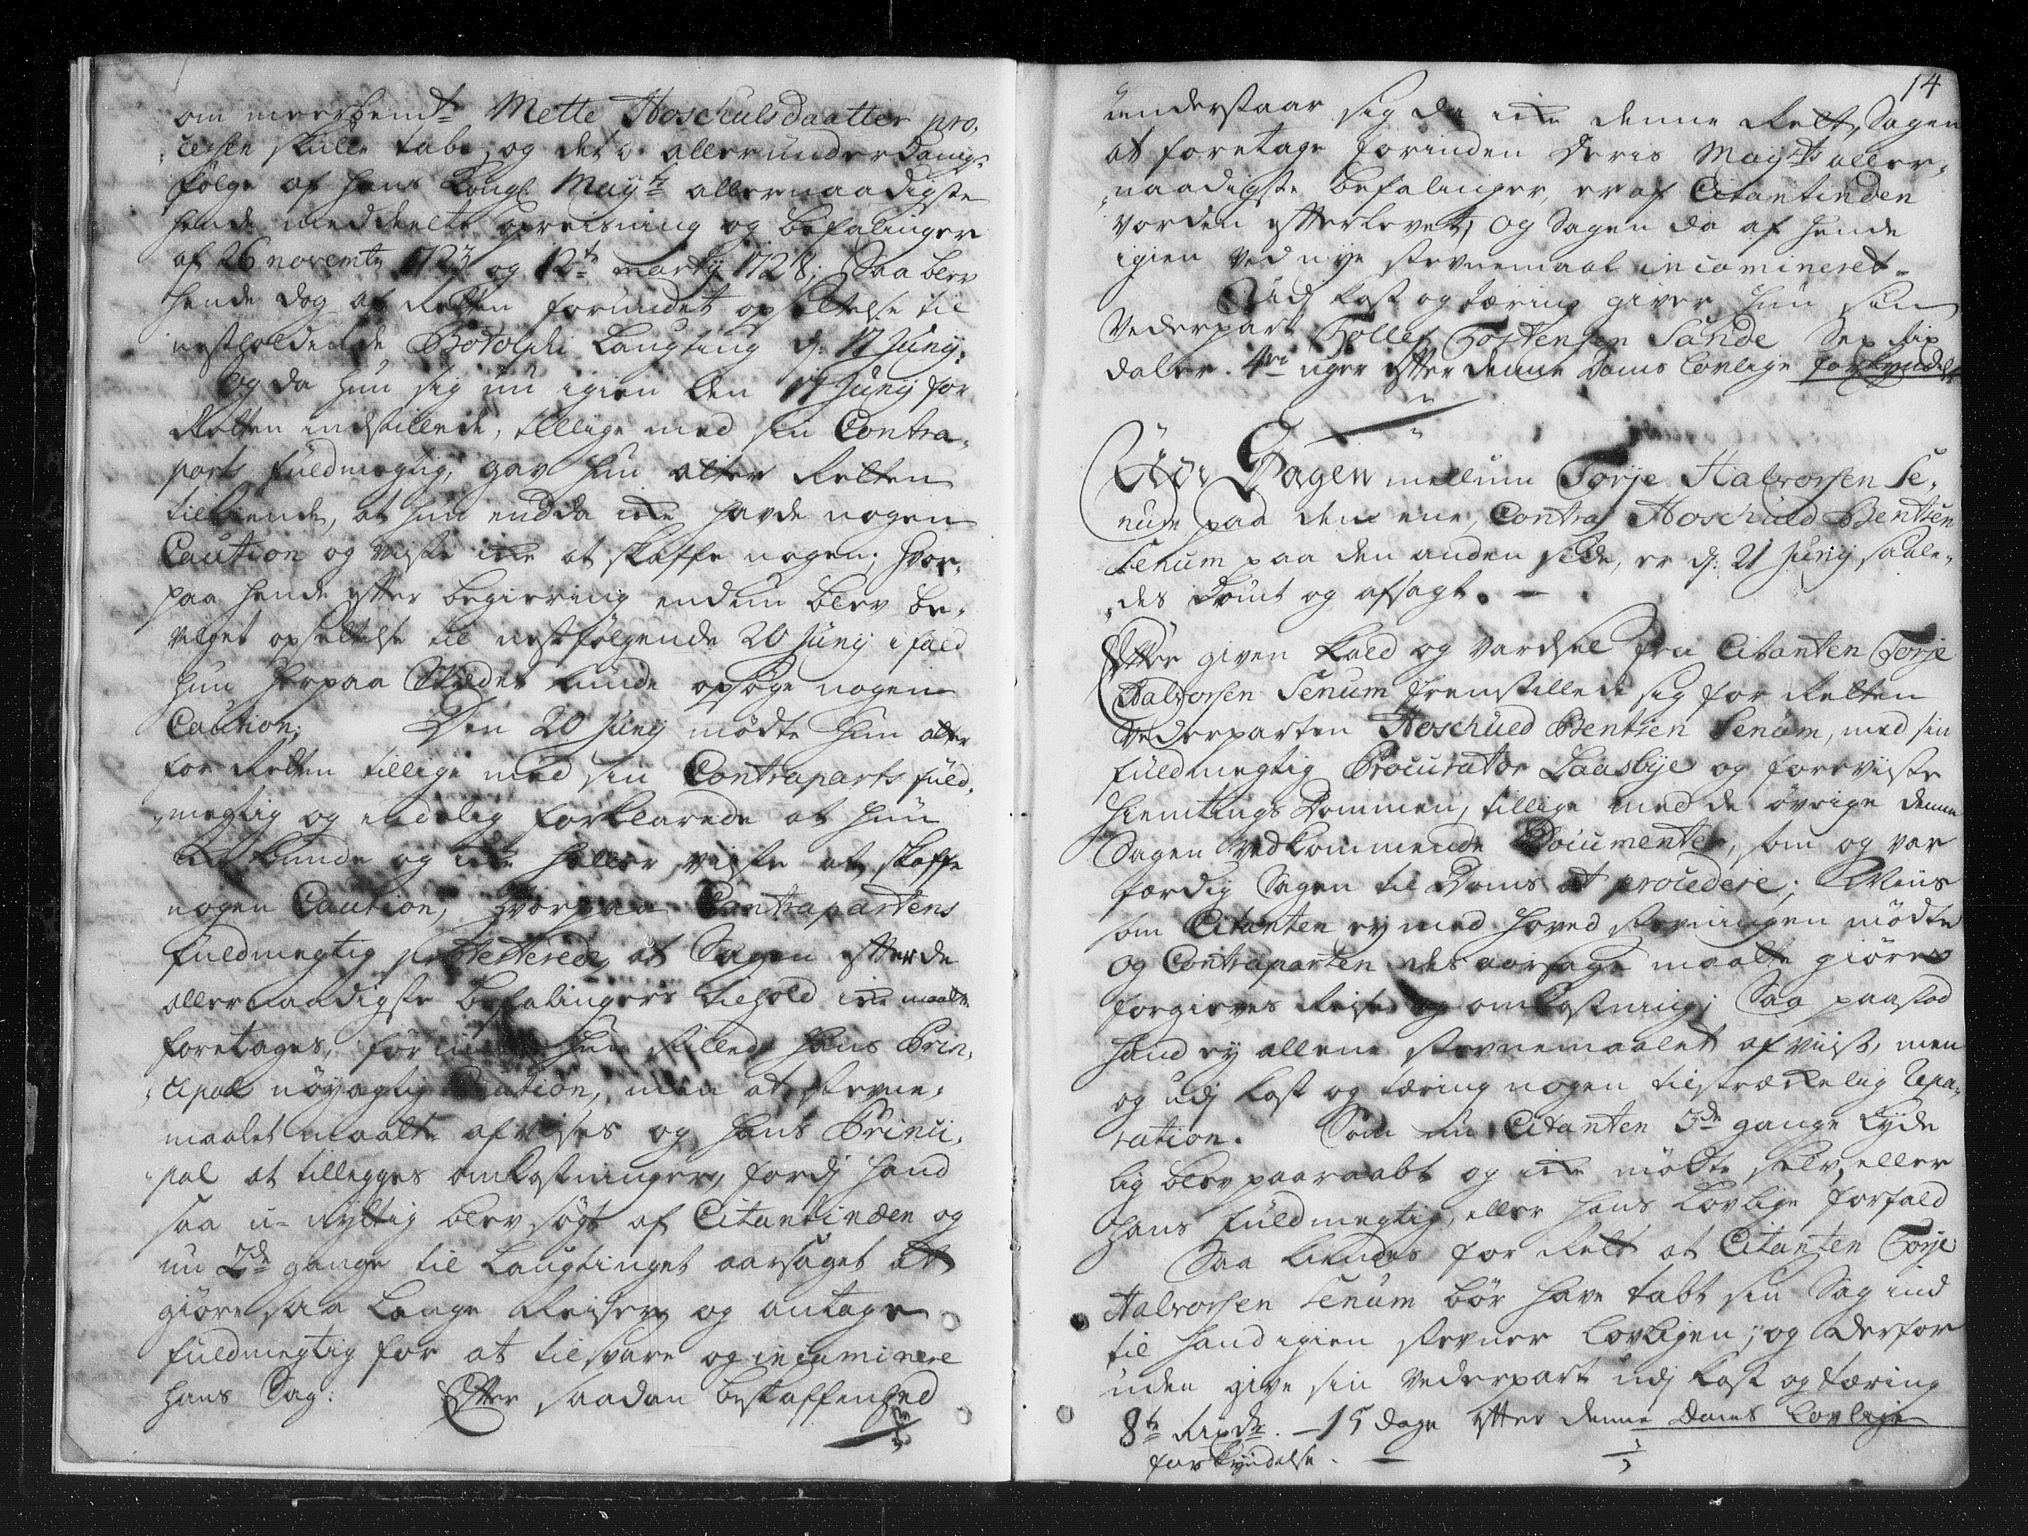 om meerbem:te Mette Hoschulsdaatter pro-
cessen skulle tabe, og det i allerunderdanig-
følge af Hans Kongl: May:ts allernaadigste
hende meddeelte opreisning og befalinger
af 26 novembr 1723 og 12:te Martij 1728; Saa blev
hende dog af Retten forundet opsettelse til
nestholdende Botolphi Laugting d: 17 Junij.
Og da hun sig nu igien den 17 Junij for
Retten indstillede, tillige med sin Contra-
parts fuldmegtig, gav hun atter Retten
tilkiende, at hun endda icke hafde nogen
Caution og viste icke at skaffe nogen; hvor-
paa hende efter begiering endnu blev be-
vilget opsettelse til nestfølgende 20 Junij ifald
hun herpaa Stædet kunde opsøge nogen
Caution; Den 20 Junij mødte hun atter
for Retten tillige med sin Contraparts fuld-
megtig og endelig forklarede at hun
ei kunde og icke heller viste at skaffe
nogen Caution, hvorpaa Contrapartens
fuldmegtig protesterede, at Sagen efter de
allernaadigste befalingers behold icke maatte
foretages, før end hun stillede hans Prin-
cipal nøyagtig Caution, men at stevne-
maalet maatte afvises og hans Princi-
pal at tillegges omkostninger, fordj hand
saa u-nyttig blev søgt af Citantinden og
nu 2de gange til Laugtinget aarsaget at
giøre saa lange Reiser og antage
fuldmegtig for at tilsvare og incaminere
hans Sag: Efter saadan beskaffenhed
14
understaar sig da icke denne Rett, Sagen
at foretage forinden Deris May:ts aller-
naadigste befalinger, er af Citantinden
vorden efterlevet, og Sagen da af hende
igien ved nye stevnemaal incamineret.
Udj kost og tæring giver hun sin
Vederpart Tollef Tostensen Sande Sex Rix
daler. 4re uger efter denne Doms Lovlige forkyndelse
Udj Sagen mellum Torje Halvorsen Se-
num paa den ene, Contra Hoschuld Bentsen
Senum paa den anden side, er d: 21 Junij saale-
des dømt og afsagt.
Efter given kald og vardsel fra Citanten Torje
Halvorsen Senum fremstillede sig for Retten
Vederparten Hoschued Bentsen Senum, med sin
fuldmegtig Procurator Laasbye og foreviiste
Hiemtings Dommen, tillige med de øvrige denne
Sagen vedkommende Documenter, som og var
færdig Sagen til Doms at procedere; Men
som Citanten ey med hoved stevningen mødte
og Contraparten des aarsage maatte giøres
forgieves Reise og omkostning; Saa paastod
hand ey allene stevnemaalet afviist, men
og udj kost og tæring nogen tilstrækkelig repa-
ration. Som nu Citanten 3de gange lyde
lig blev paaraabt og icke mødte selv, eller
hans fuldmegtig, eller hans Lovlige forfald
Saa kiendes for Rett at Citanten Torje
Halvorsen Senum bør have tabt sin Sag ind
til hand igien stevner Lovligen, og derfor
uden give sin Vederpart udj kost og tæring
8te Rixdr. – 15 dage efter denne Doms Lovlige
forkyndelse. –